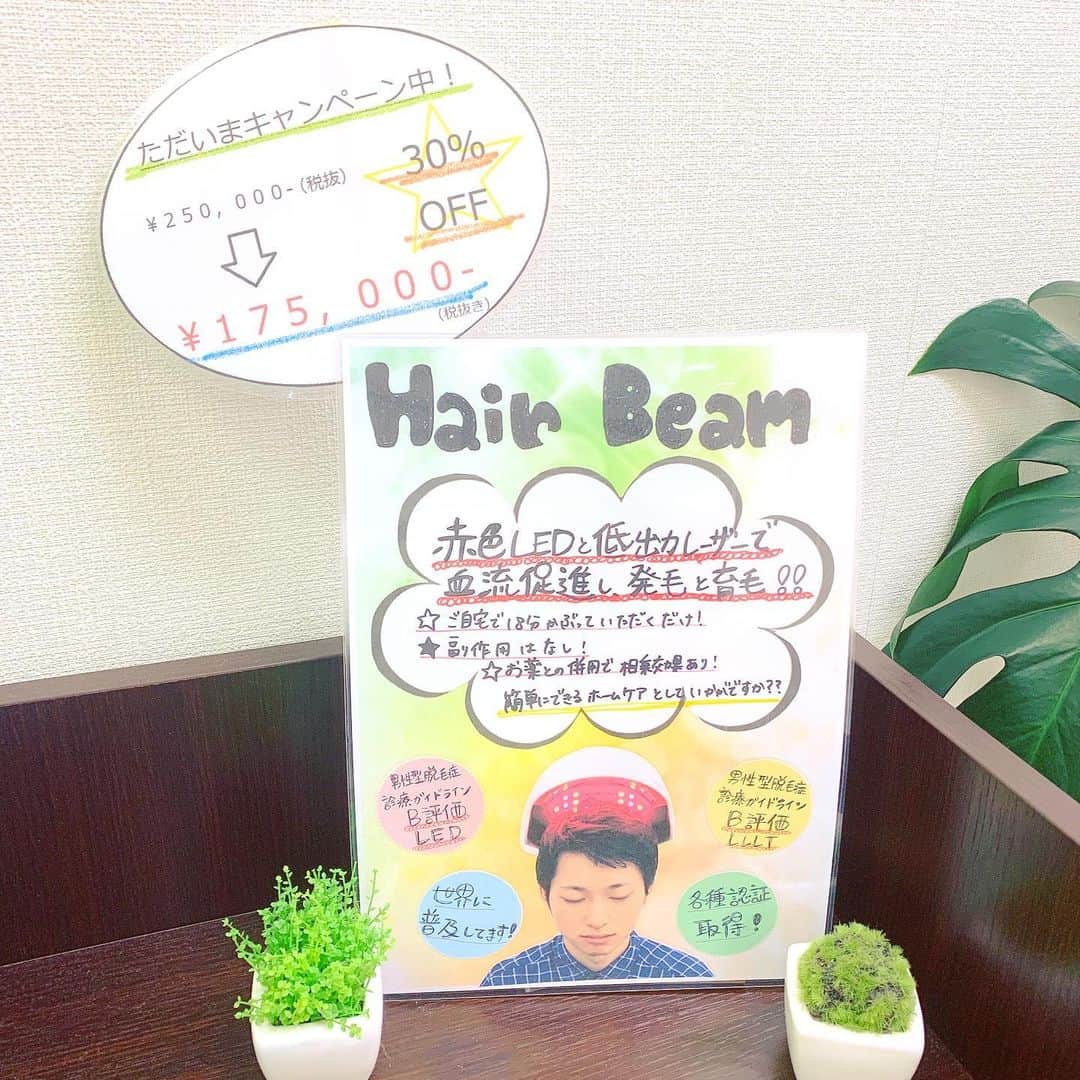 ただいまキャンペーン中！
30%
OFF
¥250,000-(税抜)
¥175,000-
(税抜き)
Hair Beam
赤色LEDと低出力レーザーで
血流促進し 発毛と育毛!!
☆ご自宅で18分かぶっていただくだけ！
★副作用はなし！
☆お薬との併用で相乗効果あり！
簡単にできるホームケアとしていかがですか??
男性型脱毛症
診療ガイドライン
B評価
LED
男性型脱毛症
診療ガイドライン
B評価
LLLT
世界に
普及してます！
各種認証
取得！